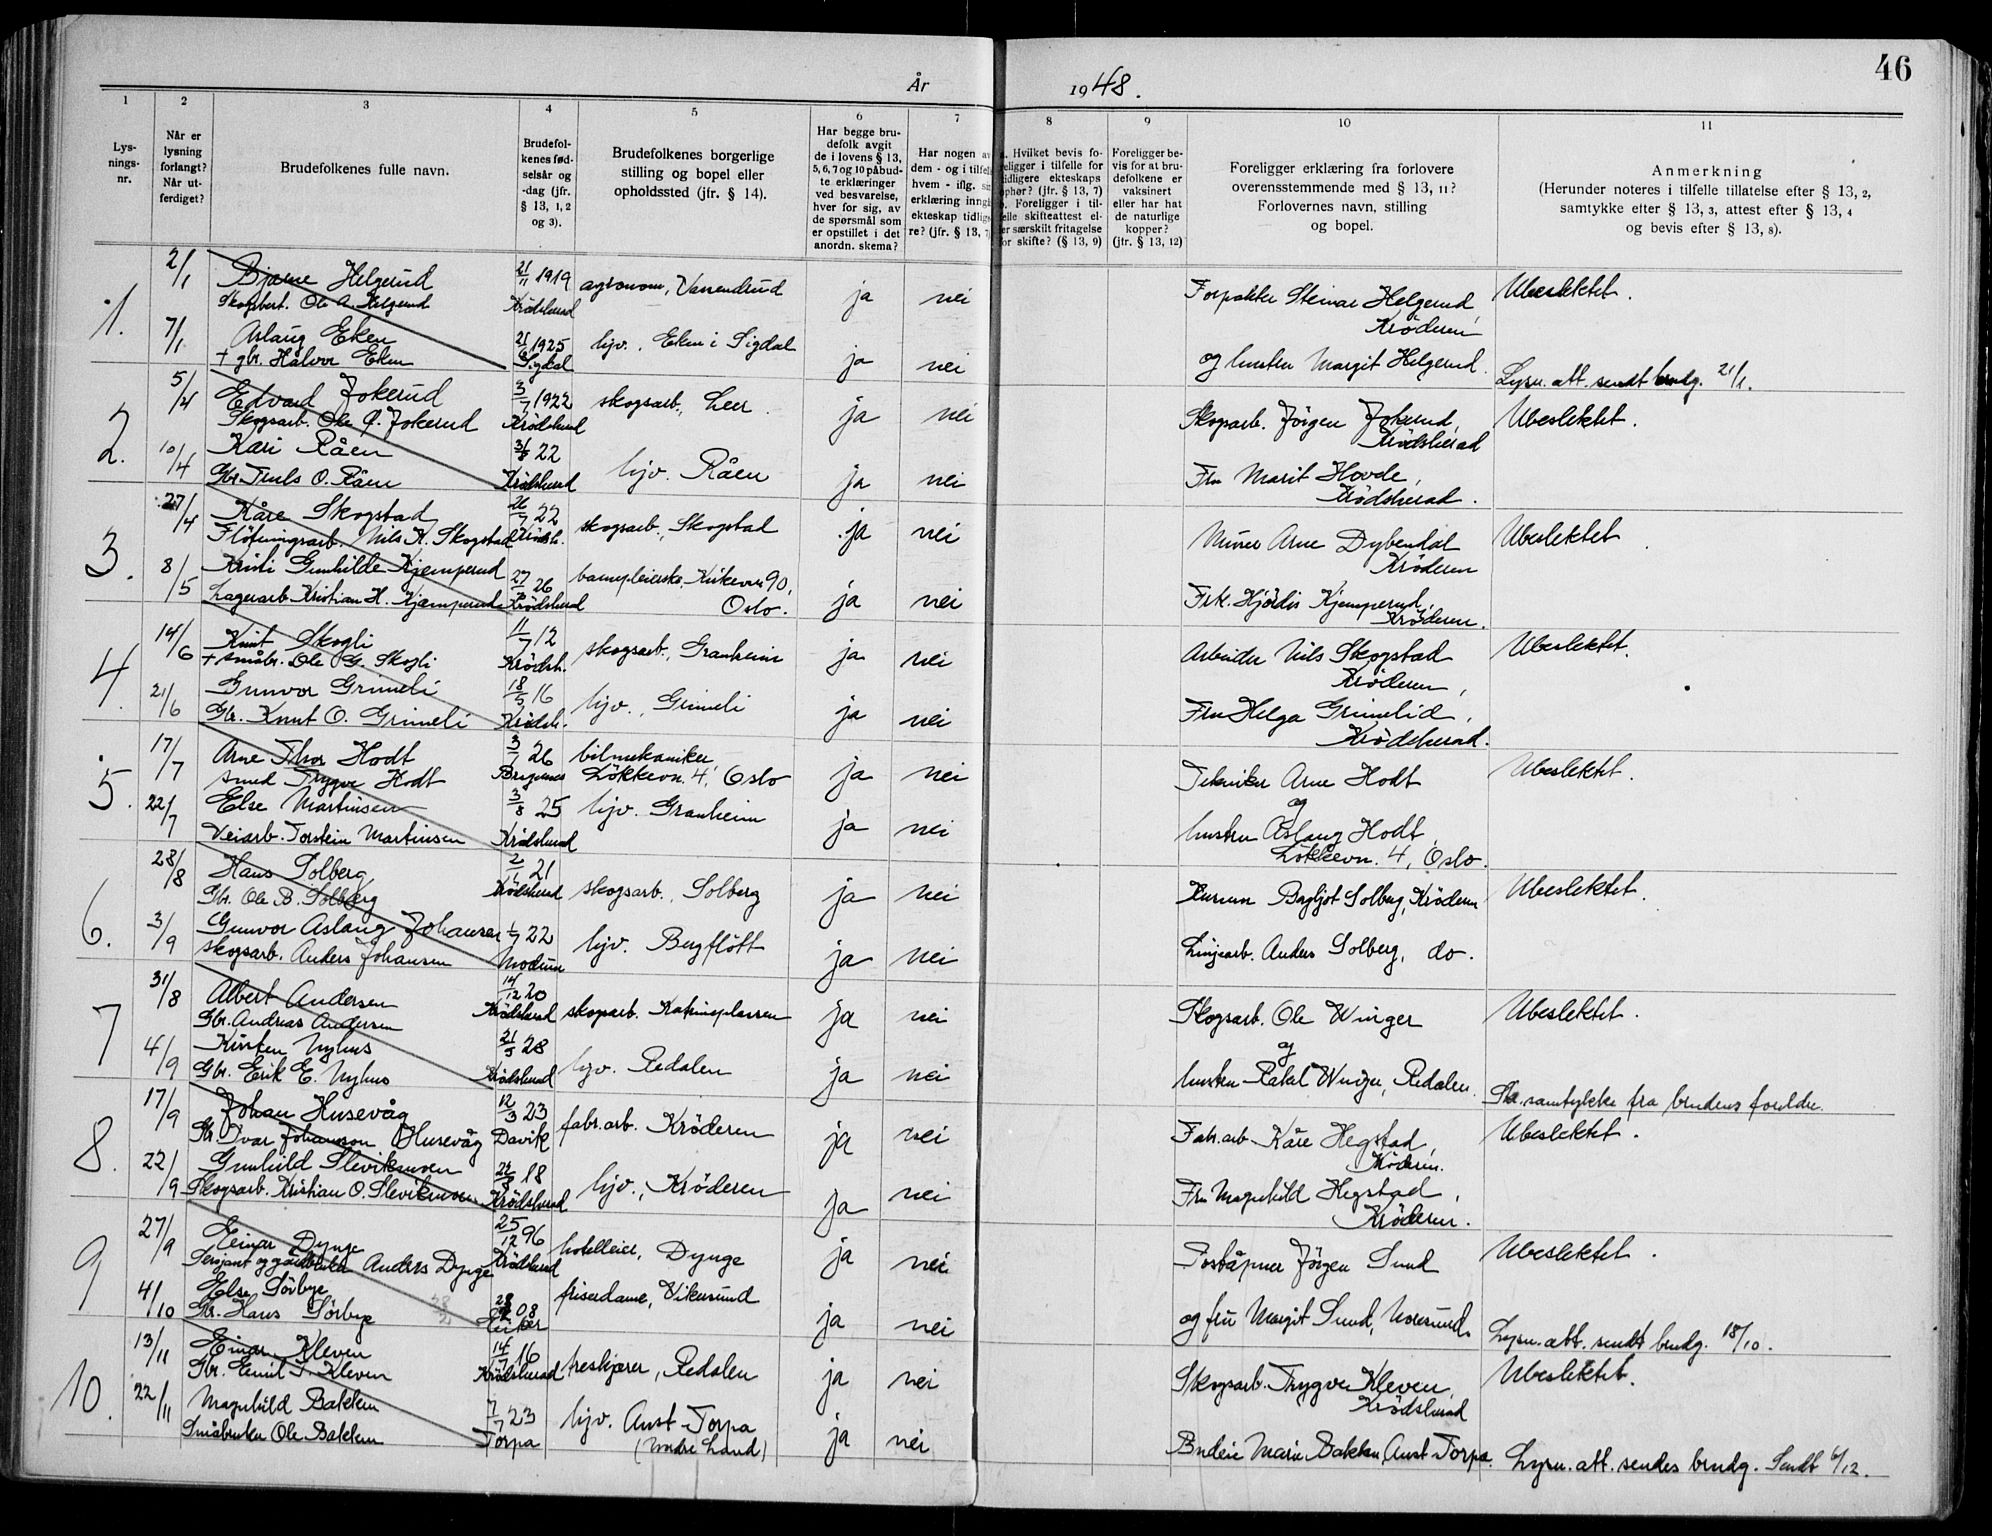 46
År 1948.
1
2
3
4
5
6
7
8
9
10
11
Lys-
nings-
nr.
Når er
lysning
forlangt?
Når ut-
ferdiget?
Brudefolkenes fulle navn.
Brudefol-
kenes fød-
selsår og
-dag (jfr.
§ 13, 1, 2
og 3).
Brudefolkenes borgerlige
stilling og bopel eller
opholdssted (jfr. § 14).
Har begge bru-
defolk avgit
de i lovens § 13,
5, 6, 7 og 10 påbud-
te erklæringer
ved besvarelse,
hver for sig, av
de spørsmål som
er opstillet i det
anordn. skema?
Har nogen av
dem - og i tilfelle
hvem - iflg. sin
erklæring inng
ekteskap tidlige-
re? (jfr. § 13, 7)
a. Hvilket bevis fo-
religger i tilfelle for
tidligere ekteskaps
ophør? (jfr. § 13, 7)
b. Foreligger i til-
felle skifteattest el-
ler særskilt fritagelse
for skifte? (§ 13, 9)
Foreligger be-
vis for at bru-
defolkene er
vaksinert
eller har hat
de naturlige
kopper?
(jfr. § 13, 12)
Foreligger erklæring fra forlovere
overensstemmende med § 13, 11?
Forlovernes navn, stilling
og bopel.
Anmerkning
(Herunder noteres i tilfelle tillatelse efter § 13, 2,
samtykke efter § 13, 3, attest efter § 13, 4
og bevis efter § 13, 8).
1. 2/1 Bjarne Helgerud 21/11 1919 agronom, Vassendrud ja nei Forpakter Steinar Helgerud, Ubeslektet.
Skogsbest. Ole A. Helgerud Krødsherad Krøderen
7/1 Aslaug Eken 21/6 1925 hjv., Eken i Sigdal ja nei og hustru Margit Helgerud.
+ gbr. Halvor Eken Sigdal Lysn. att. sendt brudg. 21/1.
2. 5/4 Edvard Jokerud 3/7 1922 skogsarb., Leer ja nei Skogsarb. Jörgen Jokerud, Ubeslektet.
Skogsarb. Ole Jokerud Krödsherad Krødsherad
10/4 Kari Råen 22 hjv. Råen ja nei Fru Marit Hovde,
Gbr. Truls O. Råen Krødsherad Krødsherad.
3. 27/4 Kåre Skogstad 26/7 22 skogsarb., Skogstad ja nei Murer Arne Dybendal Ubeslektet
Flötningsarb. Nils K. Skogstad Krødsh. Kröderen
8/5 Kristi Gunhilde Kjemperud 27/ 26 barnepleierske Kirkevn 90, ja nei Frk. Hjördis Kjemperud,
Lagerarb. Kristian H. Kjemperud Krødsherad Oslo. Krøderen.
4. 14/6 Knut Skogli 11/7 12 skogsarb., Granheim ja nei Arbeider Nils Skogstad Ubeslektet.
+ småbr. Ole G. Skogli Krødsh. Krøderen,
21/6 Gunvor Grimeli 18/5 16 hjv., Grimeli ja nei Fru Helga Grimelid,
Gbr. Knut O. Grimeli Krødsh. Krødsherad.
5. 17/7 Arne Thor Hodt 3/7 26 bilmekaniker ja nei Tekniker Arne Hodt Ubeslektet.
smed Trygve Hodt Bragernes Lökkevn. 4, Oslo og
22/7 Else Martinsen 3/8 25 hjv. Granheim ja nei hustru Aslaug Hodt,
Veiarb. Torstein Martinsen Krødsherad Lökkevn. 4, Oslo.
6. 28/8 Hans Solberg 2/1 21 skogsarb., Solberg ja nei Bergljot Solberg, Krøderen Ubeslektet.
Gbr. Ole B. Solberg Krødsherad
3/9 Gunvor Aslaug Johansen 1/7 22 hjv. Bergflött ja nei Linjearb. Anders Solberg, do.
skogsarb. Anders Johansen Modum
7 31/8 Albert Andersen 14/12 20 skogsarb. Katrineplassen ja nei Skogsarb. Ole Winger Ubeslektet.
Gbr. Andreas Andersen Krødsherad og
4/9 Kirsten Nyhus 21/5 28 hjv. Redalen ja nei hustru Rakel Winger, Redalen.
Gbr. Erik E. Nyhus Krødsherad Skr. samtykke fra brudens foreldre.
8. 17/9 Johan Husevåg 12/3 23 fabr.arb. Kröderen ja nei Fabr.arb Kåre Hegstad, Ubeslektet.
Gbr. Ivar Johanson Husevåg Davik Krøderen.
22/9 Gunhild Sleviksveen 22/8 18 hjv., Kröderen ja nei Fru Magnhild Hegstad,
Skogsarb. Kristian O. Sleviksveen Krødsherad Kröderen.
9 27/9 Einar Dynge 25/12 96 hotelleier, Dynge ja nei Poståpner Jörgen Sund Ubeslektet.
Sersjant og gårdbruker Anders Dynge Krødsherad
4/10 Else Sörbye 28/2 08 friserdame, Vikersund ja nei og fru Margit Sund, Noresund.
Gbr. Hans Sörbye 28/2 Eiker Lysn. att. sendt brudg. 18/10.
10. 13/11 Einar Kleven 14/7 16 treskjærer, Redalen ja nei Skogsarb. Trygve Kleven, Ubeslektet.
Gbr. Emil T. Kleven Krødsherad Krødsherad
22/11 Magnhild Bakken 7/7 23 hjv. Aust-Torpa ja nei Budeie Marie Bakken, Aust-Torpa.
Småbruker Ole Bakken Torpa (Nordre Land) Lysn. att. sendes brudg. Sendt 6/12.